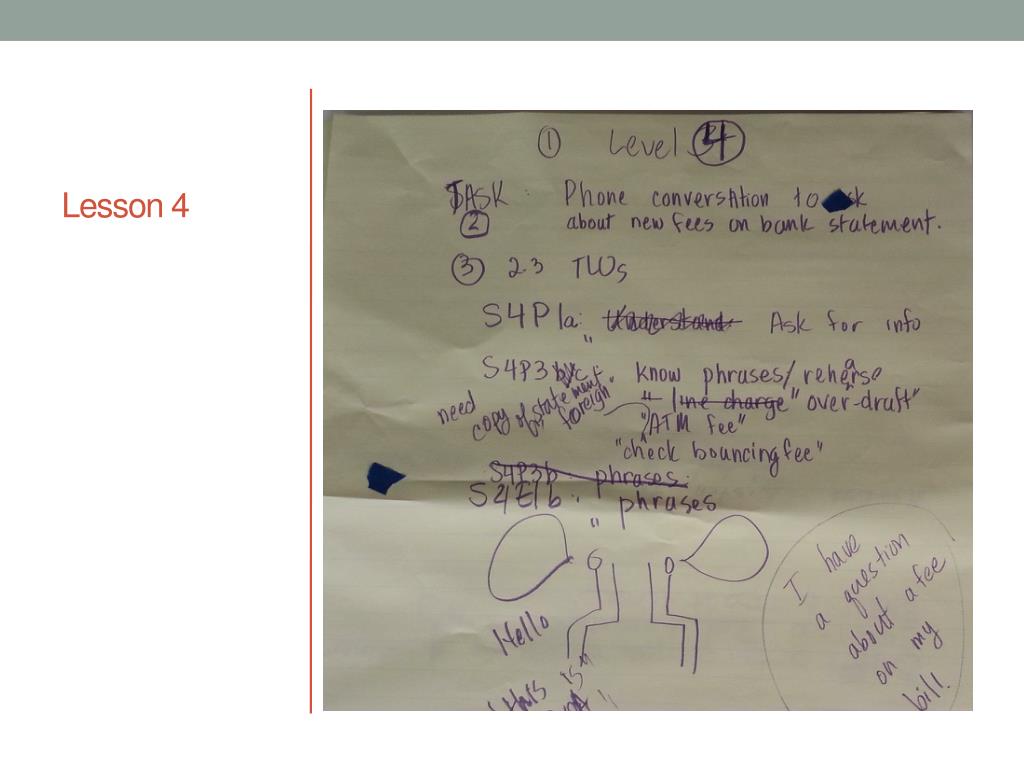 Lesson 4
① Level 4
TASK : Phone conversation to ask
② about new fees on bank statement.
③ 2.3 TWOs
S4P1a: Understand Ask for info
"
S4P3 know phrases/reherse
a
need copy of statement
"foreign"
" line charge" over-draft"
"ATM fee"
"check bouncing fee"
S4P3b : phrases:
S4E1b : phrases
"
Hello
this is
I have
a question
about a fee
on my
bill.